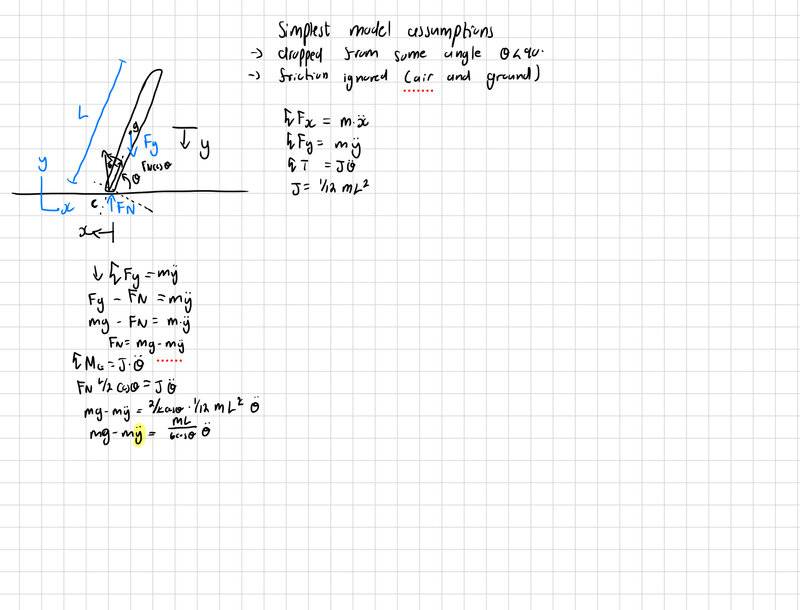 Simplest model assumptions
-> dropped from some angle θ<90.
-> friction ignored (air and ground)
ΣFx = m·ẍ
ΣFy = mÿ
ΣT = Jθ̈
J = 1/12 mL²
L
g
Fy
y
FNcosθ
θ
y
x
c
FN
x
↓ ΣFy = mÿ
Fy - FN = mÿ
mg - FN = m·ÿ
FN = mg - mÿ
ΣMG = J·θ̈
FN L/2 cosθ = Jθ̈
mg - mÿ = 2/Lcosθ · 1/12 mL² θ̈
mg - mÿ = mL/6cosθ θ̈